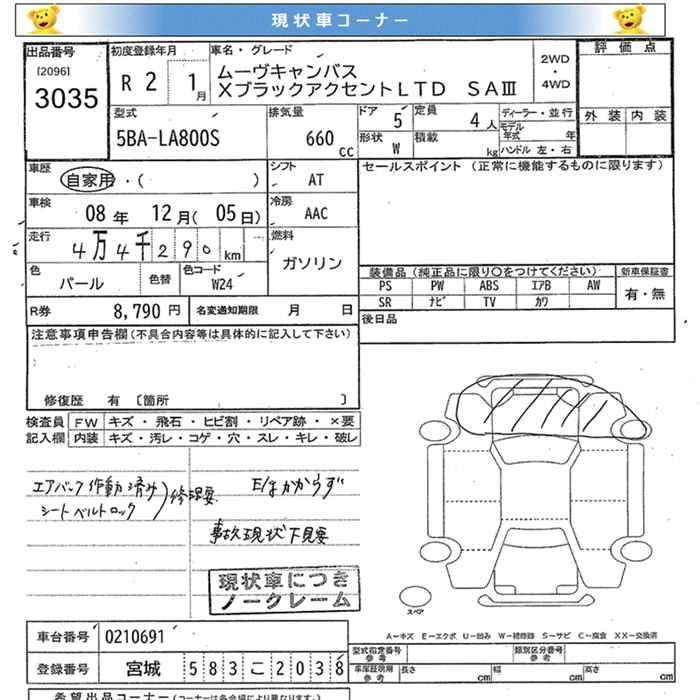 現状車コーナー
出品番号 初度登録年月 車名・グレード 評価点
[2096] 3035 R 2 1月 ムーヴキャンバス 2WD・4WD
XブラックアクセントLTD SAⅢ
外装 内装
型式 排気量 ドア 5 定員 4人 ディーラー・並行
5BA-LA800S 660cc 形状 W 積載 kg モデル年式 年
ハンドル 左・右
車歴 自家用・( ) シフト AT セールスポイント (正常に機能するものに限ります)
車検 08年 12月(05日) 冷房 AAC
走行 4万4千290km 燃料 ガソリン
色 パール 色替 色コード W24
装備品(純正品に限り○をつけてください) 新車保証書
PS PW ABS エアB AW 有・無
SR ナビ TV カワ
R券 8,790円 名変通知期限 月 日 後日品
注意事項申告欄(不具合内容等は具体的に記入して下さい)
修復歴 有 [箇所 ]
検査員記入欄 FW キズ・飛石・ヒビ割・リペア跡・×要
内装 キズ・汚レ・コゲ・穴・スレ・キレ・破レ
エアバック作動済み
シートベルトロック
)修理要
E/gかからず
事故現状下見要
現状車につき
ノークレーム
スペア
A-キズ E-エクボ U-凹み W-補修跡 S-サビ C-腐食 XX-交換済
車台番号 0210691
登録番号 宮城 583 こ 2038
型式指定番号 参考 類別区分番号 参考
車庫証明用 参考 長さ cm 幅 cm 高さ cm
希望出品コーナー(コーナーは各会場により異なります。)